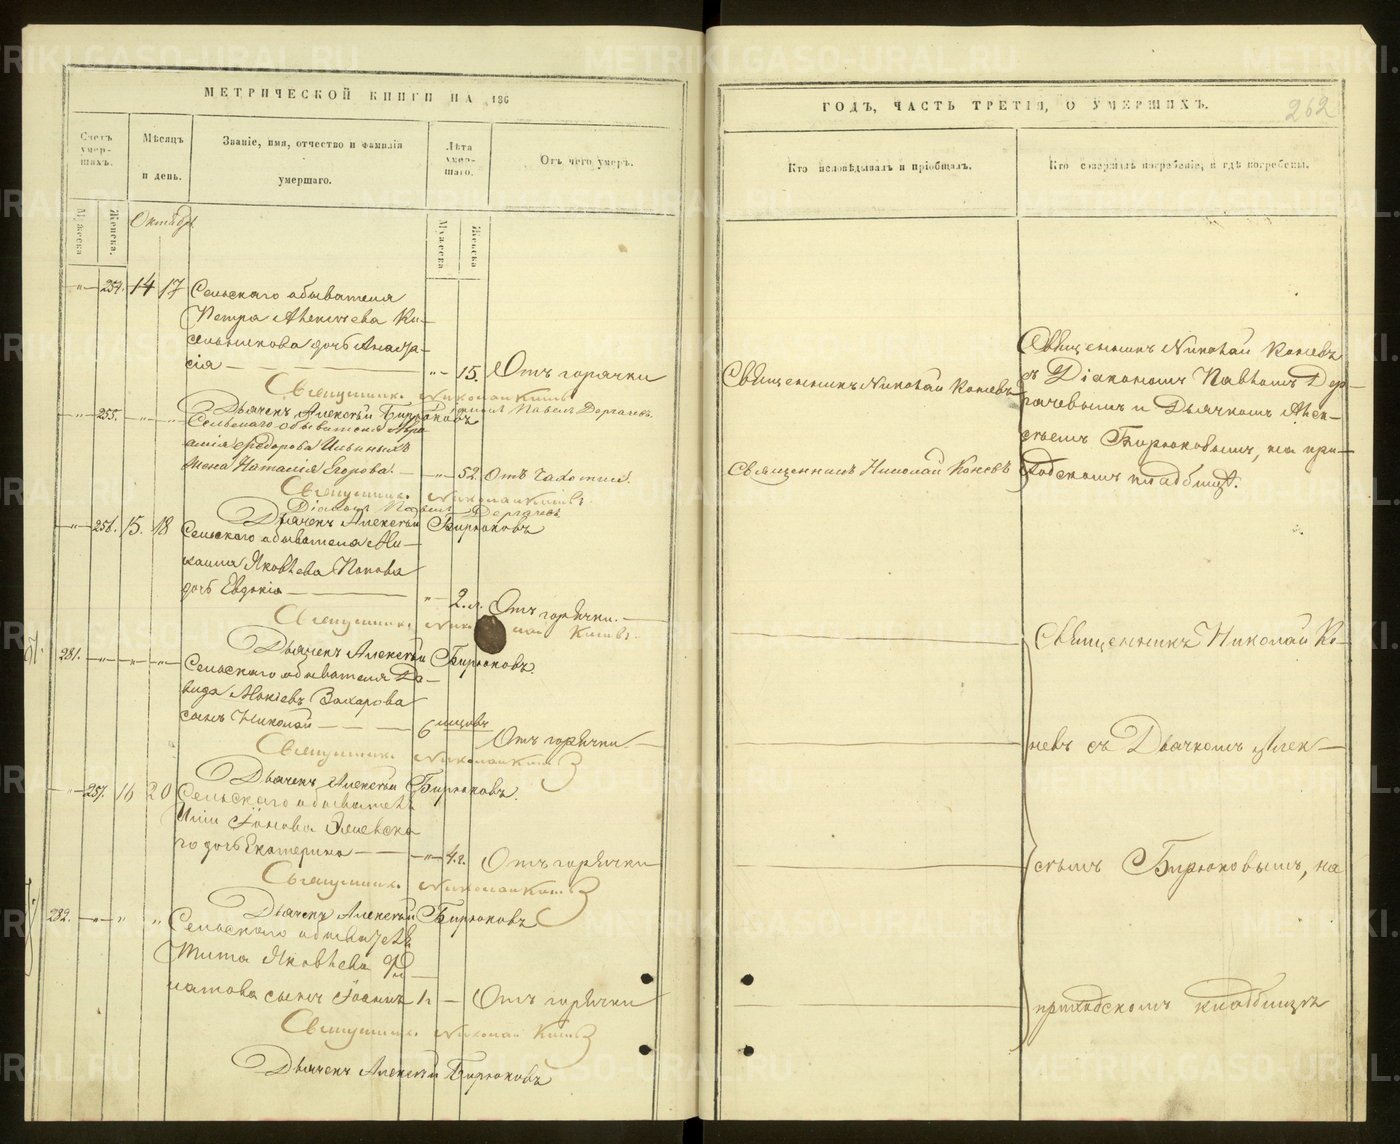 МЕТРИЧЕСКОЙ КНИГИ НА 186
Счетъ умершихъ.
Мѣсяцъ и день.
Званіе, имя, отчество и фамилія умершаго.
Лѣта умершаго.
Отъ чего умеръ.
Мужеска
Женска.
Октябрь
Мужеска
Женска
254. 14 17 Сельскаго обывателя
Петра Алексѣева Ки-
сельникова дочь Анаста-
сія 15. Отъ горячки
Священникъ Николай Коневъ
Діаконъ Павелъ Дергачевъ
Дьячекъ Алексѣй Бирюковъ
255. Сельскаго обывателя Авра-
амія Ѳедорова Ильиныхъ
жена Наталія Егорова. 52. Отъ чахотки.
Священникъ Николай Коневъ
Діаконъ Павелъ Дергачевъ
Дьячекъ Алексѣй Бирюковъ
256. 15. 18 Сельскаго обывателя Ми-
хаила Яковлева Попова
дочь Евдокія 2. л. Отъ горячки.
Священникъ Николай Коневъ
Дьячекъ Алексѣй Бирюковъ.
281. Сельскаго обывателя Да-
вида Мокіевъ Захарова
сынъ Николай 6 мѣсяцовъ Отъ горячки.
Священникъ Николай Коневъ
Дьячекъ Алексѣй Бирюковъ.
257. 16 20 Сельскаго обывателя
Іонова
го дочь Екатерина 4. г. Отъ горячки
Священникъ Николай Коневъ
Дьячекъ Алексѣй Бирюковъ
282. Сельскаго обывателя
Тита Яковлева
сынъ Іоаннъ Отъ горячки
Священникъ Николай Коневъ
Дьячекъ Алексѣй Бирюковъ
ГОДЪ, ЧАСТЬ ТРЕТІЯ, О УМЕРШИХЪ.
262
Кто исповѣдывалъ и пріобщалъ.
Кто совершалъ погребеніе, и гдѣ погребены.
Священникъ Николай Коневъ
Священникъ Николай Коневъ
Священникъ Николай Коневъ
съ Діакономъ Павломъ Дер-
гачевымъ и Дьячкомъ Алек-
сѣемъ Бирюковымъ, на при-
ходскомъ кладбищѣ.
Священникъ Николай Ко-
невъ съ Дьячкомъ Алек-
сѣемъ Бирюковымъ, на
приходскомъ кладбищѣ
METRIKI.GASO-URAL.RU